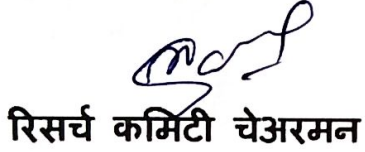 रिसर्च कमिटी चेअरमन